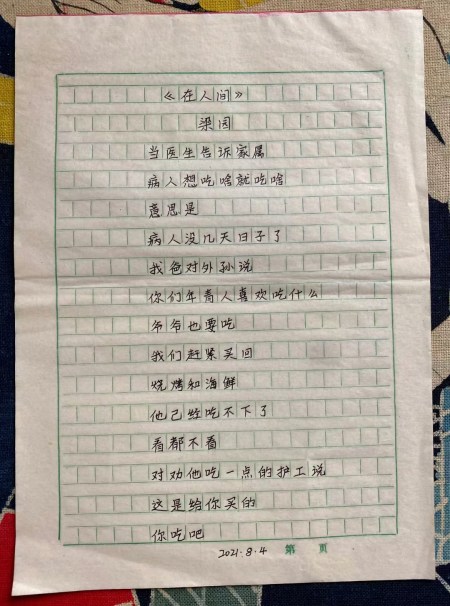 《在人间》
梁园
当医生告诉家属
病人想吃啥就吃啥
意思是
病人没几天日子了
我爸对外孙说
你们年青人喜欢吃什么
爷爷也要吃
我们赶紧买回
烧烤和海鲜
他已经吃不下了
看都不看
对劝他吃一点的护工说
这是给你买的
你吃吧
2021.8.4 第 页